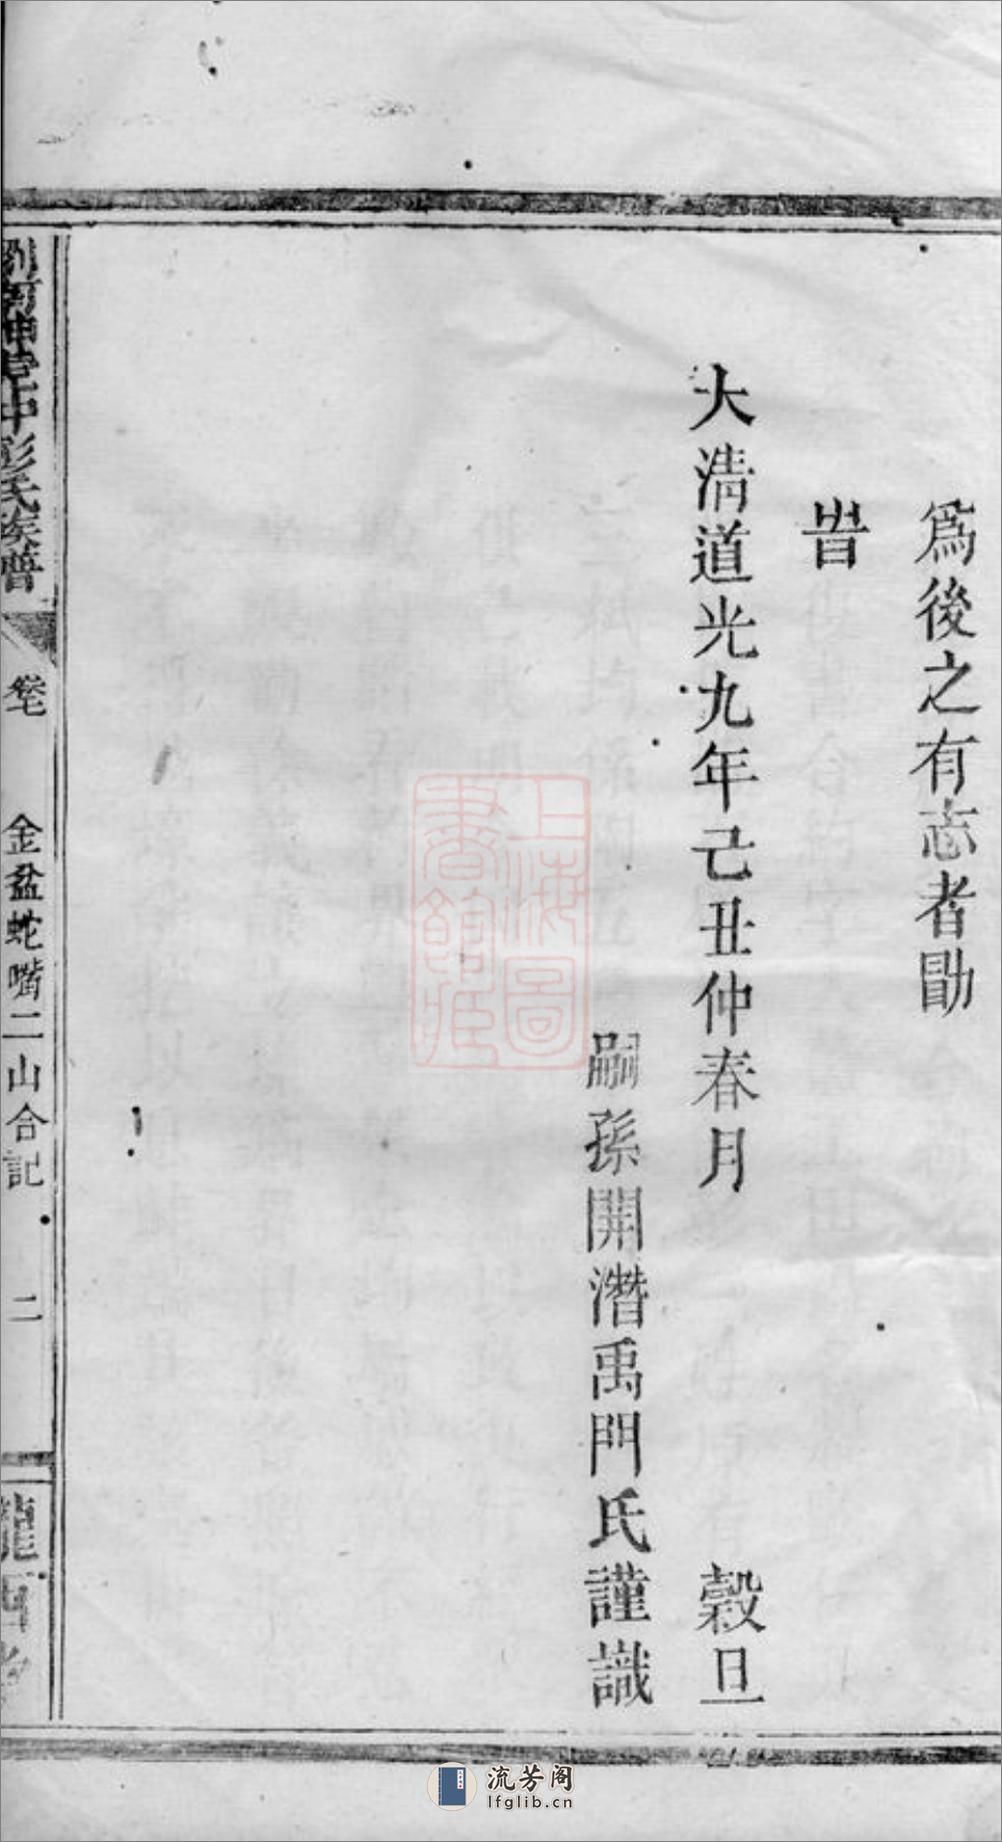 爲後之有志者勖
旹
大淸道光九年己丑仲春月 穀旦
嗣孫開潛禹門氏謹識
彭氏族譜
卷七
金盆蛇嘴二山合記
二
上海圖書館藏
流芳阁
lfglib.cn